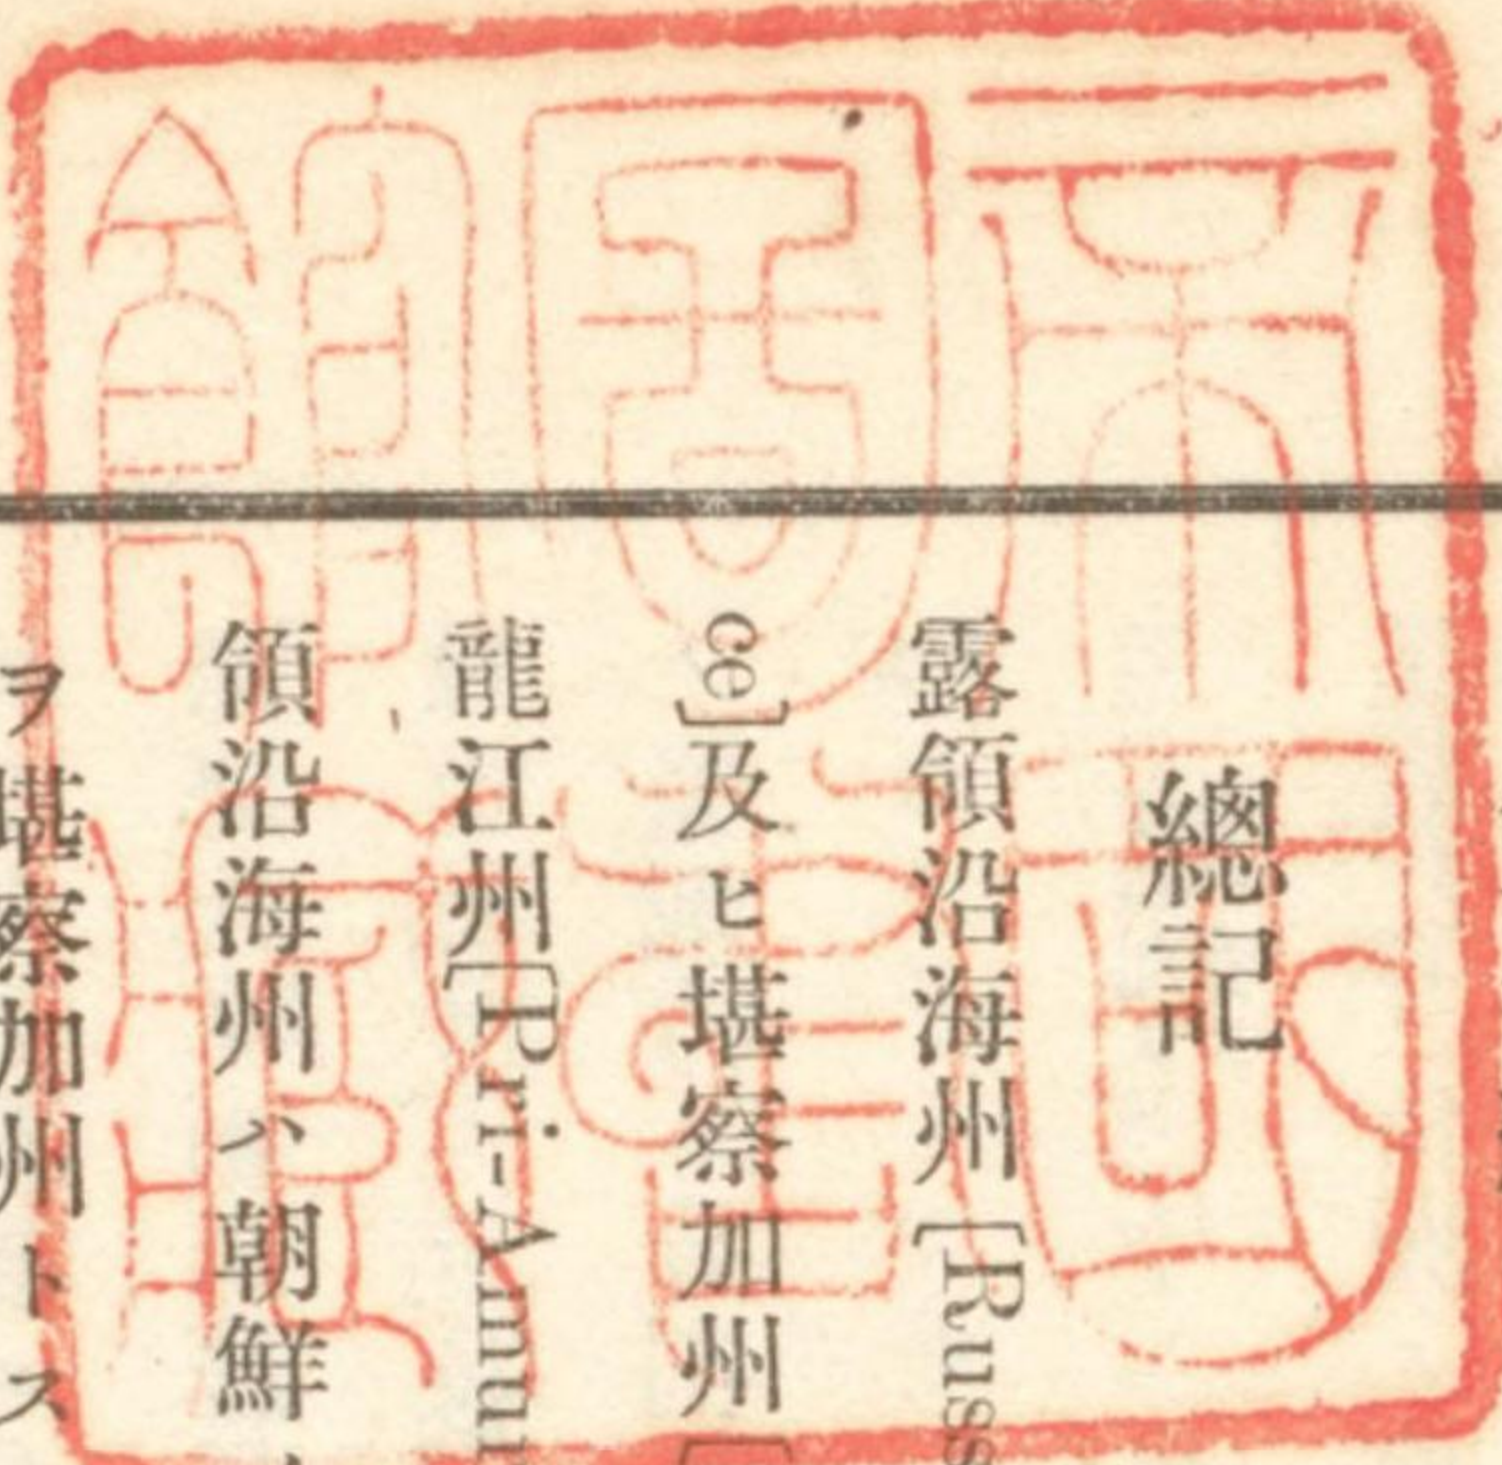 帝國圖書館藏
總記
露領沿海州[Russ
ce]及ヒ堪察加州[
龍江州[Pri-Amur
領沿海州ハ朝鮮
ヲ堪察加州トス